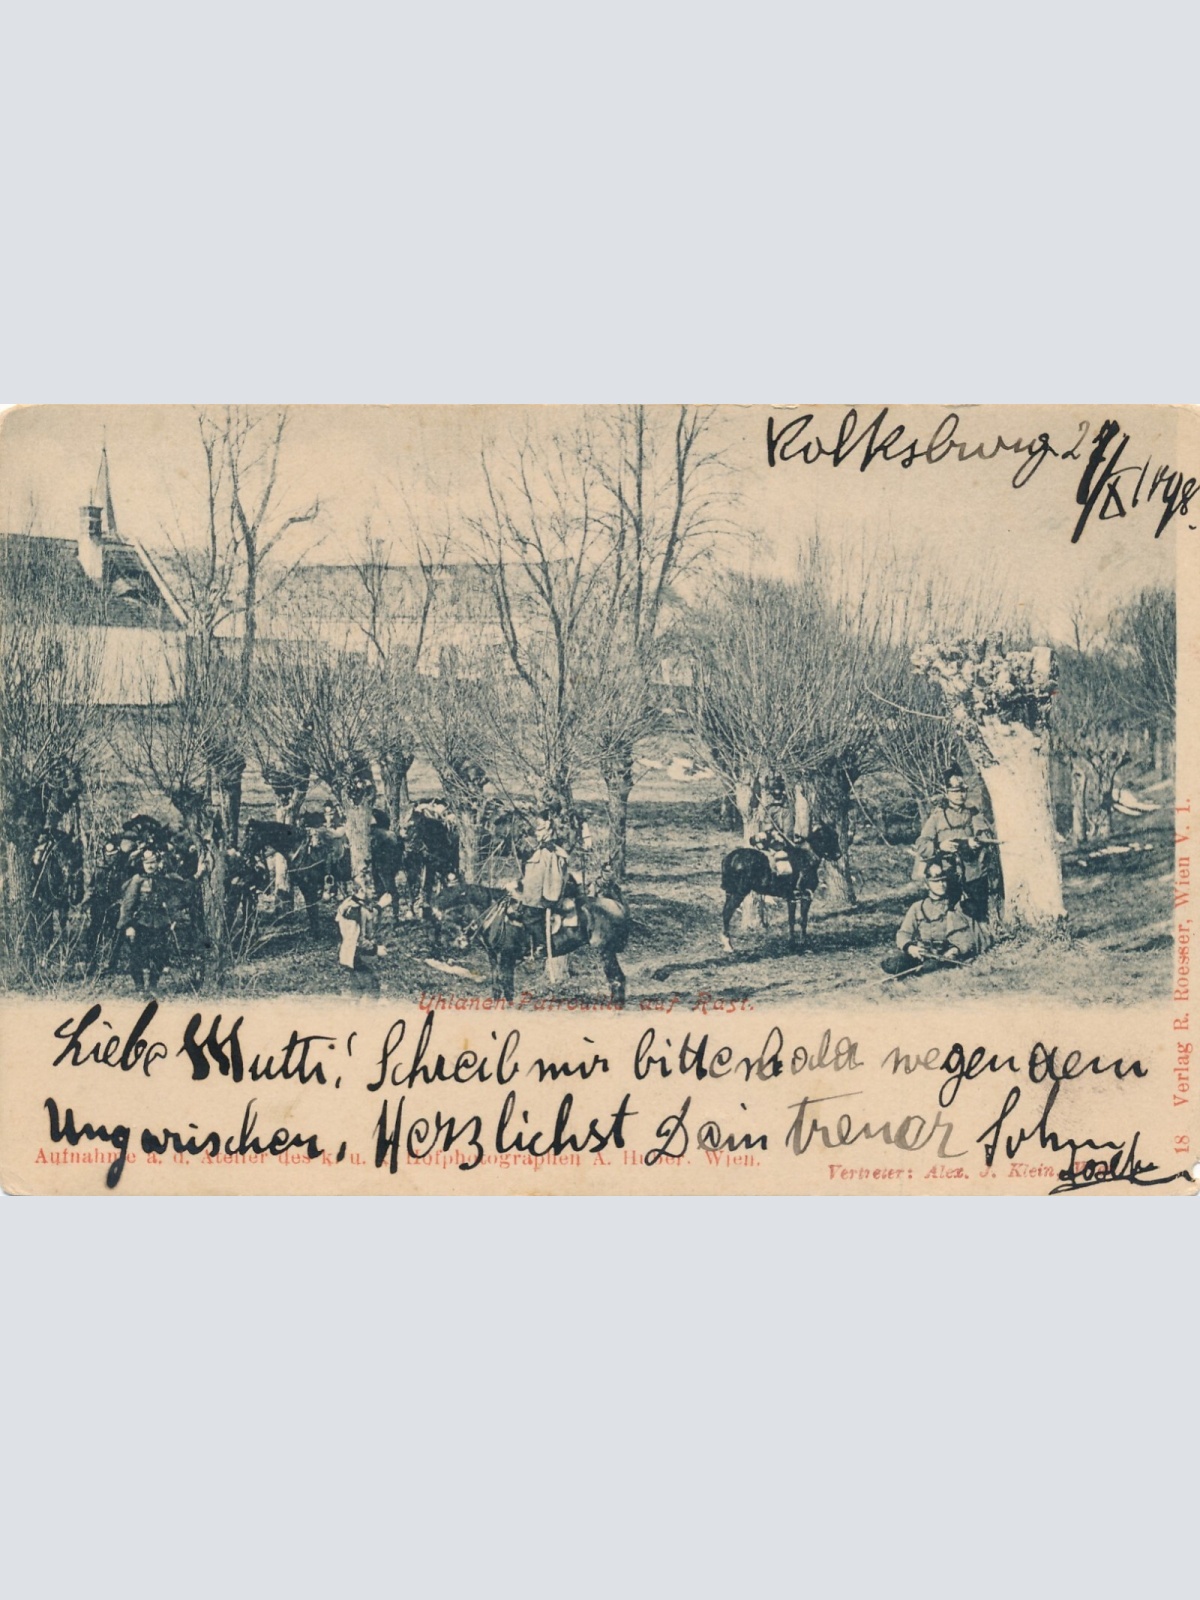 Kolksburg 27/X 1898.
Uhlanen-Patrouille auf Rast.
Liebe Mutti! Schreib mir bitte bald wegen dem
Ungarischen, Herzlichst Dein treuer Sohn
Aufnahme a. d. Atelier des k. u. k. Hofphotographen A. Huber, Wien.
Vertreter: Alex. J. Klein,
18 Verlag R. Roesser, Wien V. 1.